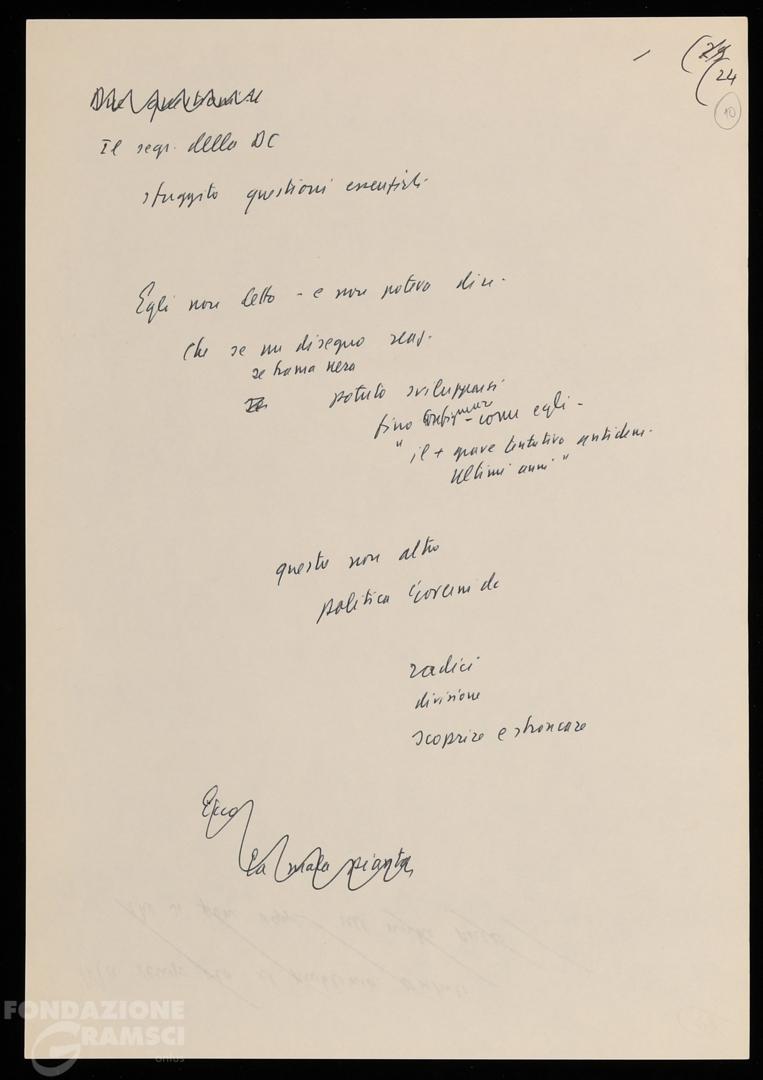 (29
(24
10
Il segr. della DC
sfuggito questioni essenziali
Egli non detto - e non poteva dire -
Che se un disegno reaz.
se trama nera
potuto svilupparsi
fino - come egli -
" il + grave tentativo antidem.
ultimi anni "
questo non altro
politica
radici
divisione
scoprire e stroncare
Ecco
la mala pianta
FONDAZIONE
GRAMSCI
onlus